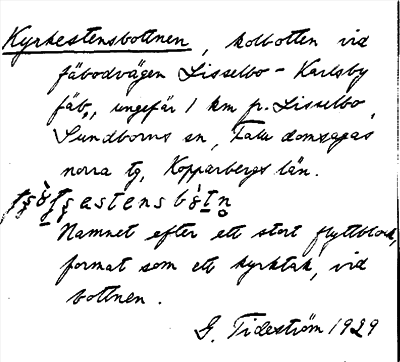 Kyrkestensbottnen, kolbotten vid
fäbodvägen Lisselbo - Karlsby
fäb., ungefär 1 km fr. Lisselbo,
Sundborns sn, Falu domsagas
norra tg, Kopparbergs län.
Namnet efter ett stort flyttblock,
format som ett kyrktak, vid
bottnen.
G. Tideström 1929